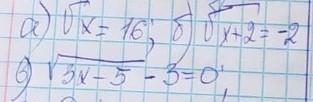 а) √x = 16; б) √x+2 = -2
в) √3x-5 - 3 = 0;